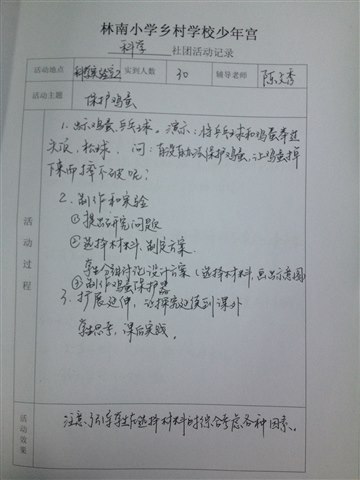 林南小学乡村学校少年宫
科学 社团活动记录
活动地点 科学实验室2 实到人数 30 辅导老师 陈文秀
活动主题 保护鸡蛋
活动过程
1. 出示鸡蛋、乒乓球。演示:将乒乓球和鸡蛋举过
头顶,松球。问:有没有办法保护鸡蛋,让鸡蛋掉
下来而摔不破呢?
2. 制作和实验
①提出研究问题
②选择材料、制定方案.
学生分组讨论设计方案(选择材料,画出示意图
③制作鸡蛋保护器
3. 扩展延伸,让探究延续到课外
学生思考,课后实践。
活动效果
注意引导学生在选择材料时综合考虑各种因素。